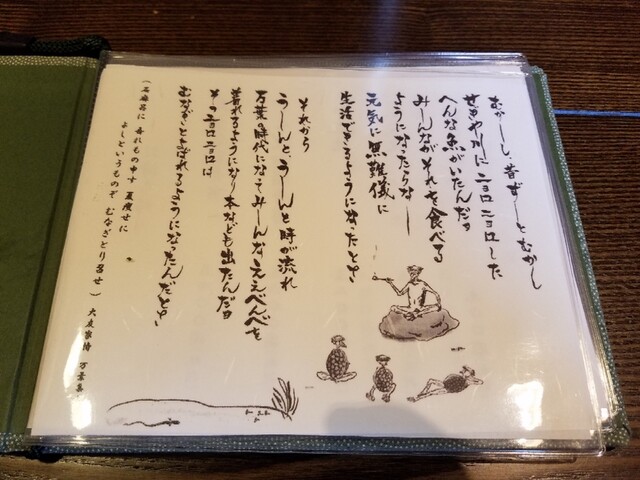 むかーしし、昔ずーっとむかし
せまや川にニョロニョロした
へんな魚がいたんだヨ
みーんながそれを食べる
ようになったらなー
元気に無難儀に
生活できるようになったとさ
それから
うーんと、うーんと時が流れ
万葉の時代になってみーんなええべんべを
着れるようになり本なども出たんだヨ
そのニョロニョロは
むなぎとよばれるようになったんだとさ
(石麻呂に吾れもの申す夏痩せに
よしというものぞむなぎとり召せ)大友家持 万葉集